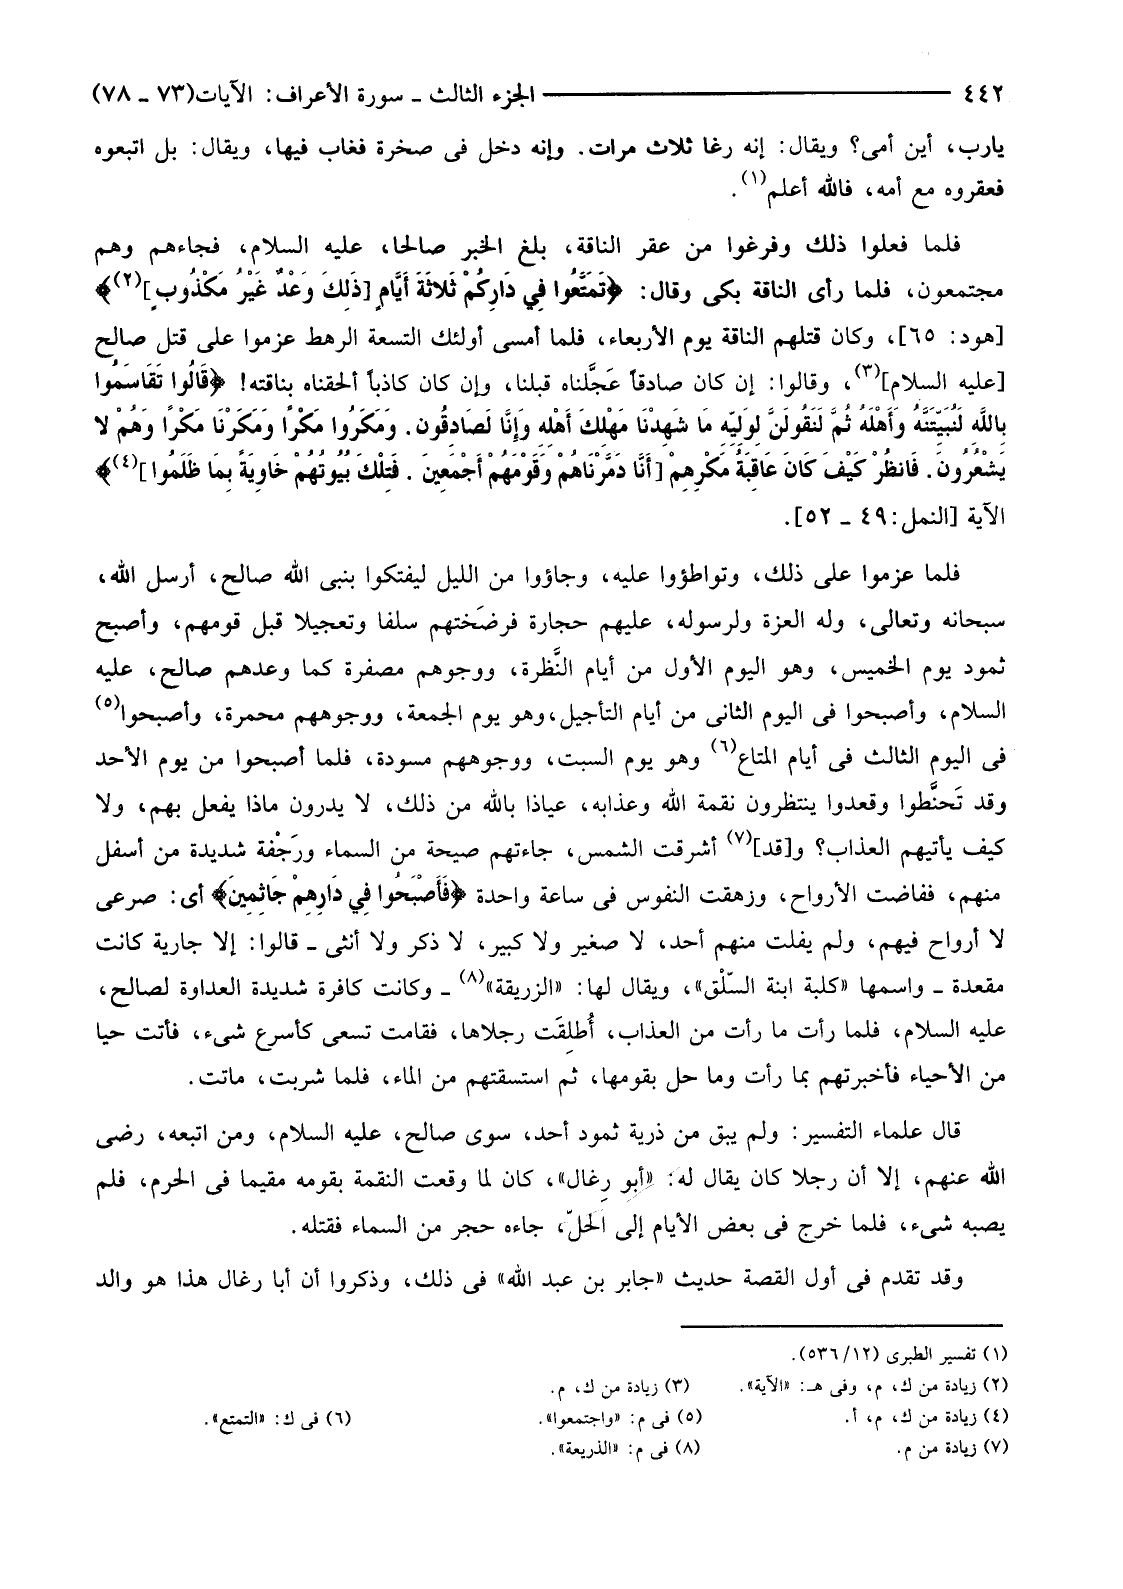 ٤٤٢ ــــــــ الجزء الثالث ـ سورة الأعراف: الآيات(٧٣ ـ ٧٨)
يارب، أين أمى؟ ويقال: إنه رغا ثلاث مرات. وإنه دخل فى صخرة فغاب فيها، ويقال: بل اتبعوه
فعقروه مع أمه، فالله أعلم(١).
فلما فعلوا ذلك وفرغوا من عقر الناقة، بلغ الخبر صالحا، عليه السلام، فجاءهم وهم
مجتمعون، فلما رأى الناقة بكى وقال: ﴿تَمَتَّعُوا فِي دَارِكُمْ ثَلاثَةَ أَيَّامٍ [ذَلِكَ وَعْدٌ غَيْرُ مَكْذُوبٍ](٢)﴾
[هود: ٦٥]، وكان قتلهم الناقة يوم الأربعاء، فلما أمسى أولئك التسعة الرهط عزموا على قتل صالح
[عليه السلام](٣)، وقالوا: إن كان صادقاً عَجَّلناه قبلنا، وإن كان كاذباً ألحقناه بناقته! ﴿قَالُوا تَقَاسَمُوا
بِاللَّهِ لَنُبَيِّتَنَّهُ وَأَهْلَهُ ثُمَّ لَنَقُولَنَّ لِوَلِيِّهِ مَا شَهِدْنَا مَهْلِكَ أَهْلِهِ وَإِنَّا لَصَادِقُون. وَمَكَرُوا مَكْراً وَمَكَرْنَا مَكْرًا وَهُمْ لا
يَشْعُرُونَ. فَانظُرْ كَيْفَ كَانَ عَاقِبَةُ مَكْرِهِمْ [أَنَّا دَمَّرْنَاهُمْ وَقَوْمَهُمْ أَجْمَعِينَ . فَتِلْكَ بُيُوتُهُمْ خَاوِيَةً بِمَا ظَلَمُوا](٤)﴾
الآية [النمل:٤٩ ـ ٥٢].
فلما عزموا على ذلك، وتواطؤوا عليه، وجاؤوا من الليل ليفتكوا بنبى الله صالح، أرسل الله،
سبحانه وتعالى، وله العزة ولرسوله، عليهم حجارة فرضَختهم سلفا وتعجيلا قبل قومهم، وأصبح
ثمود يوم الخميس، وهو اليوم الأول من أيام النَّظرة، ووجوهم مصفرة كما وعدهم صالح، عليه
السلام، وأصبحوا فى اليوم الثانى من أيام التأجيل،وهو يوم الجمعة، ووجوههم محمرة، وأصبحوا(٥)
فى اليوم الثالث فى أيام المتاع(٦) وهو يوم السبت، ووجوههم مسودة، فلما أصبحوا من يوم الأحد
وقد تَحنَّطوا وقعدوا ينتظرون نقمة الله وعذابه، عياذا بالله من ذلك، لا يدرون ماذا يفعل بهم، ولا
كيف يأتيهم العذاب؟ و[قد](٧) أشرقت الشمس، جاءتهم صيحة من السماء ورَجْفة شديدة من أسفل
منهم، ففاضت الأرواح، وزهقت النفوس فى ساعة واحدة ﴿فَأَصْبَحُوا فِي دَارِهِمْ جَاثِمِينَ﴾ أى: صرعى
لا أرواح فيهم، ولم يفلت منهم أحد، لا صغير ولا كبير، لا ذكر ولا أنثى ـ قالوا: إلا جارية كانت
مقعدة ـ واسمها «كلبة ابنة السّلْق»، ويقال لها: «الزريقة»(٨) ـ وكانت كافرة شديدة العداوة لصالح،
عليه السلام، فلما رأت ما رأت من العذاب، أُطلِقَت رجلاها، فقامت تسعى كأسرع شىء، فأتت حيا
من الأحياء فأخبرتهم بما رأت وما حل بقومها، ثم استسقتهم من الماء، فلما شربت، ماتت.
قال علماء التفسير: ولم يبق من ذرية ثمود أحد، سوى صالح، عليه السلام، ومن اتبعه، رضى
الله عنهم، إلا أن رجلا كان يقال له: «أبو رِغال»، كان لما وقعت النقمة بقومه مقيما فى الحرم، فلم
يصبه شىء، فلما خرج فى بعض الأيام إلى الحلّ، جاءه حجر من السماء فقتله.
وقد تقدم فى أول القصة حديث «جابر بن عبد الله» فى ذلك، وذكروا أن أبا رغال هذا هو والد
(١) تفسير الطبرى (١٢/ ٥٣٦).
(٢) زيادة من ك، م، وفى هـ: «الآية». (٣) زيادة من ك، م.
(٤) زيادة من ك، م، أ. (٥) فى م: «واجتمعوا». (٦) فى ك: «التمتع».
(٧) زيادة من م. (٨) فى م: «الذريعة».